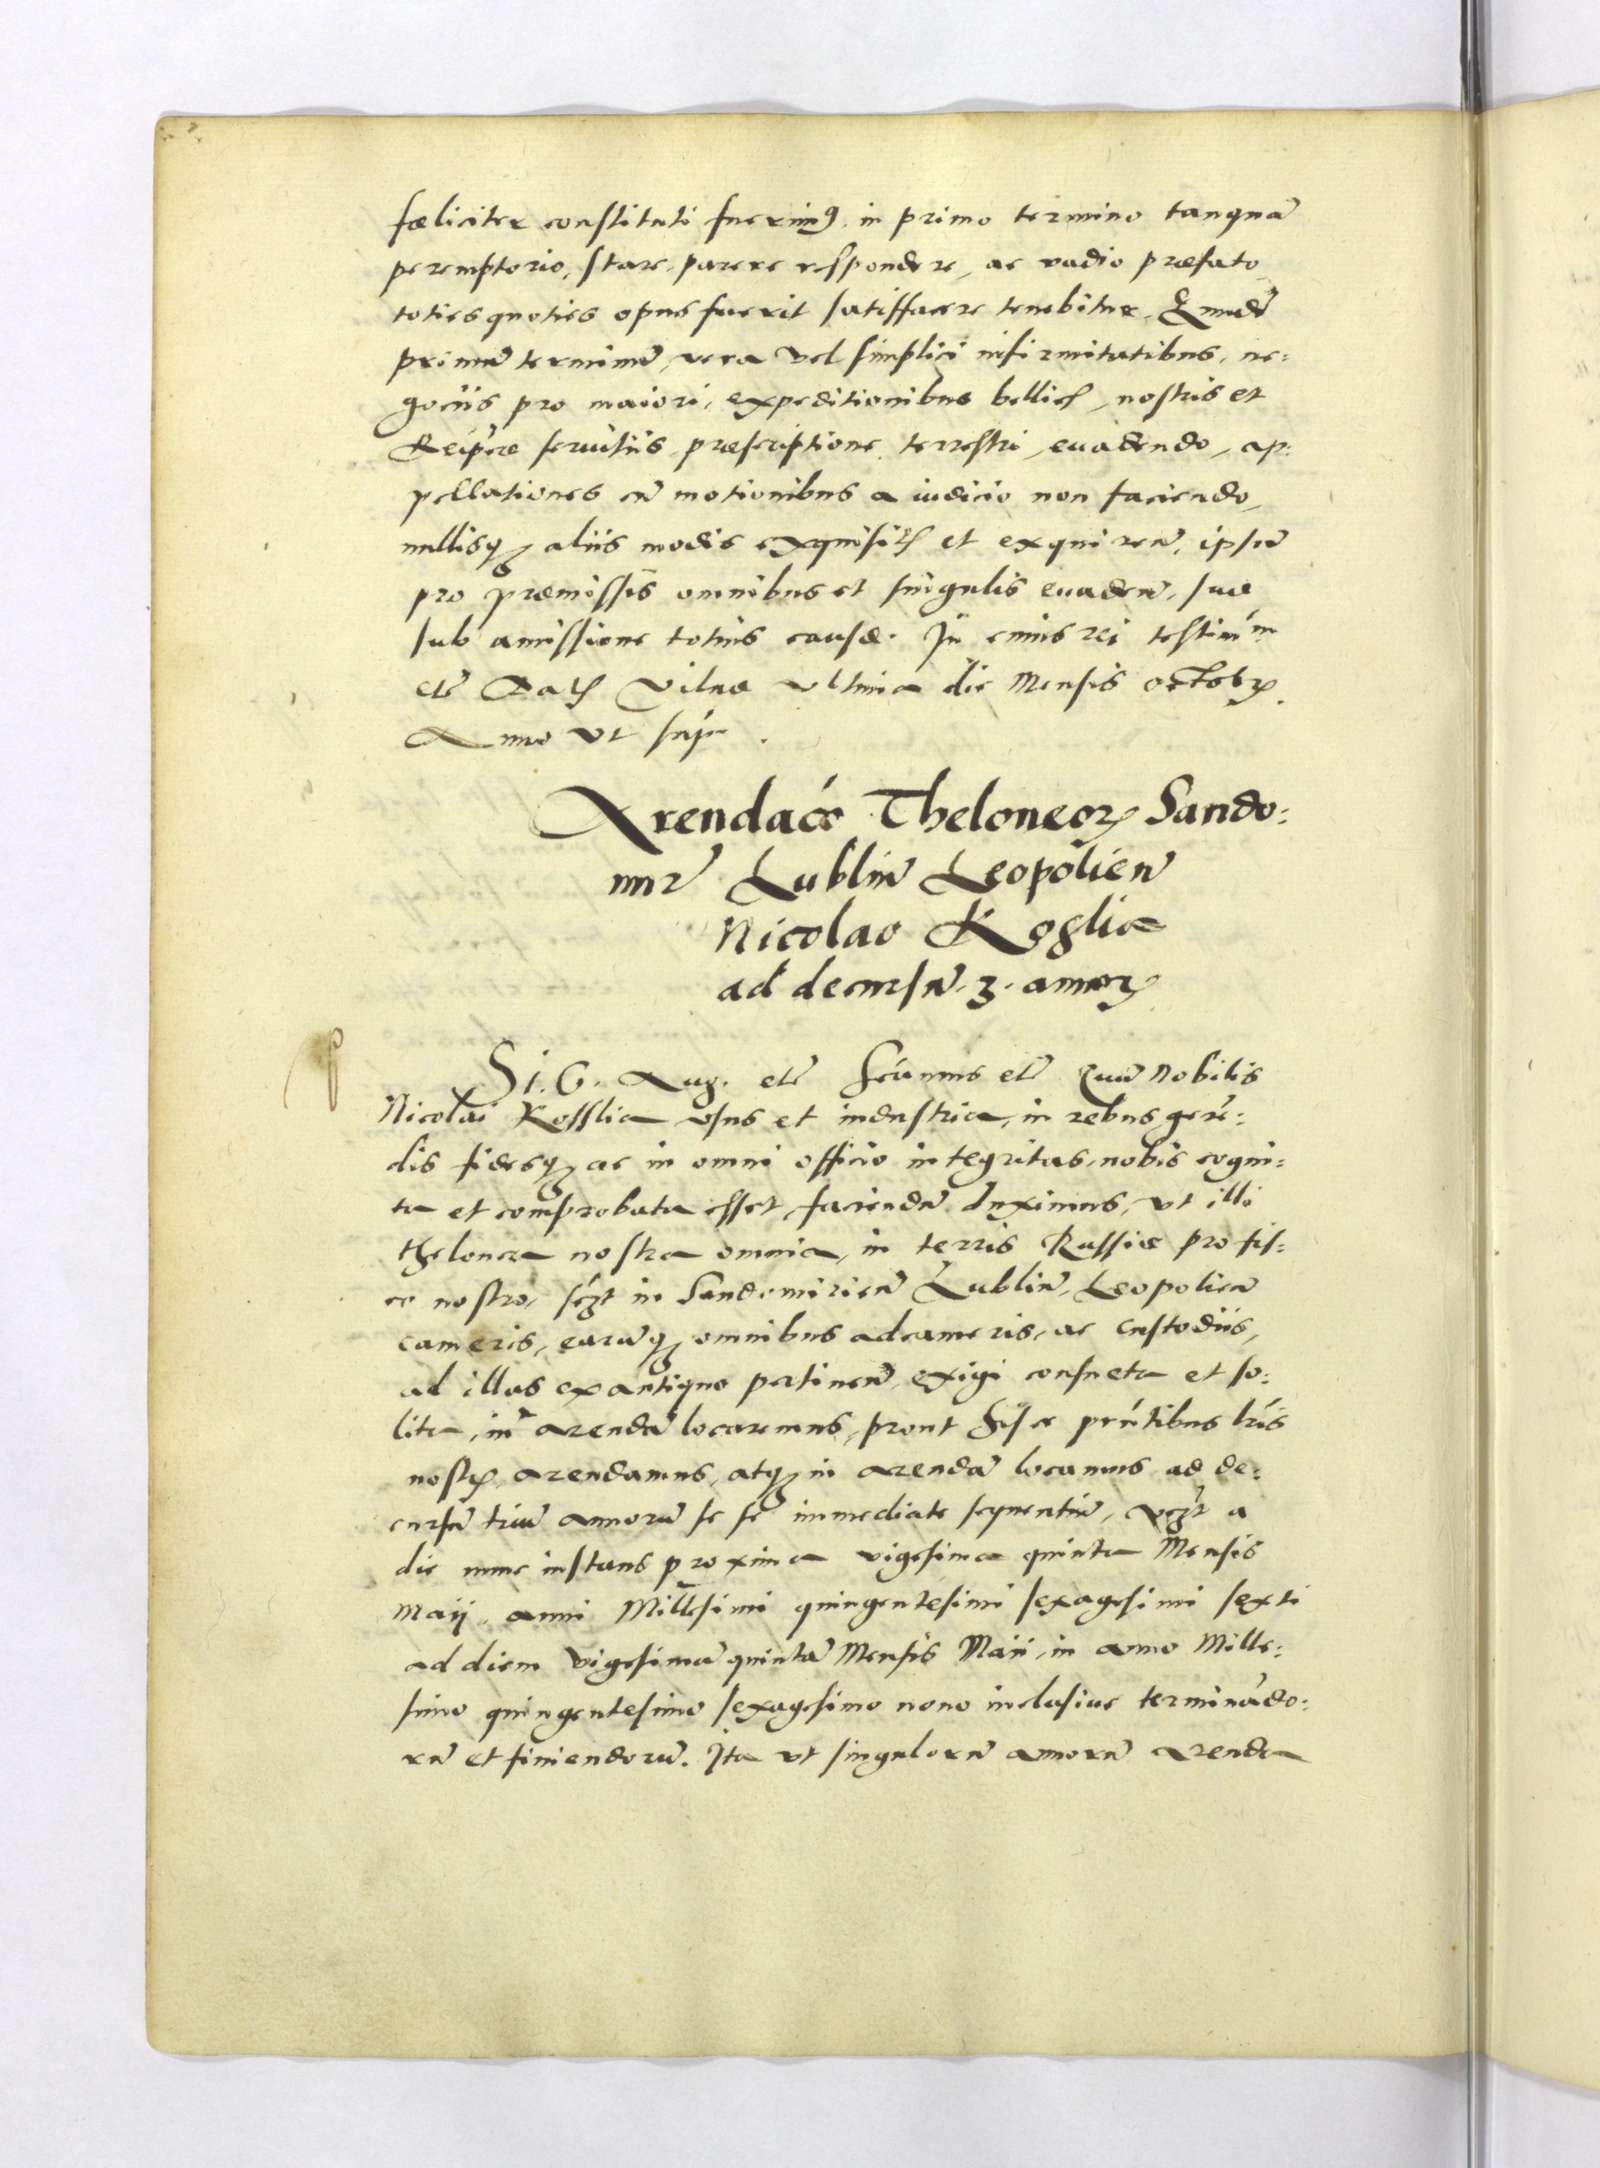 fœliciter constituti fuerimꝰ, in primo termino tanquã
peremptorio, stare, parere respondere, ac vadio præfato
toties quoties opus fuerit satisffacere tenebitur. Eundẽ
primũ terminũ, vera vel simplici infirmitatibus, ne:
gociis pro maiori, expeditionibus bellicꝭ, nostris et
Reipcæ servitiis præscriptione terrestri, euadendo, ap:
pellationes cũ motionibus a iudicio non faciendo,
nullisqꝫ aliis modis exquisitꝭ et exquireñ, ipsũ
pro præmissis omnibus et singulis euadeñ, sue
sub amissione totius causæ. In cuius rei testimm
etc̃ Datꝭ Vilnæ vltima die Mensis octobrꝭ
Anno vt sup̃
Arendaco Theloneorꝝ Sando:
mir̃ Lubliñ Leopolieñ
Nicolao Koslia
ad decursũ .3. annorꝝ
Si. G. Aug. etc̃ scãmus etc̃ Quũ Nobilis
Nicolai Kosslia vsus et industria, in rebus gerẽ:
dis fidesqꝫ ac in omni officio integritas, nobis cogni:
ta et comprobata esset, faciendũ duximus, vt illi
thelonea nostra omnia, in terris Russiæ pro fis:
co nostro, sczt in Sandomirieñ Lubliñ, Leopolieñ
cameris, earũqꝫ omnibus adcameris, ac custodiis,
ad illas ex antiquo pertineñ, exigi consueta et so:
lita, in arendã locaremus, prout hisce pñtibus lr̃is
nostrꝭ arendamus, atqꝫ in arendã locamus ad de:
cursũ triũ annorũ se se immediate sequentiũ, vczt a
die nunc instans proxima vigesima quinta Mensis
Maij, anni Millesimi quingentesimi sexagesimi sexti
ad diem vigesimã quintã Mensis Maii, in anno Mille:
simo quingentesimo sexagesimo nono inclusiue terminãdo:
rũ et finiendorũ. Ita vt singulorũ annorũ arenda